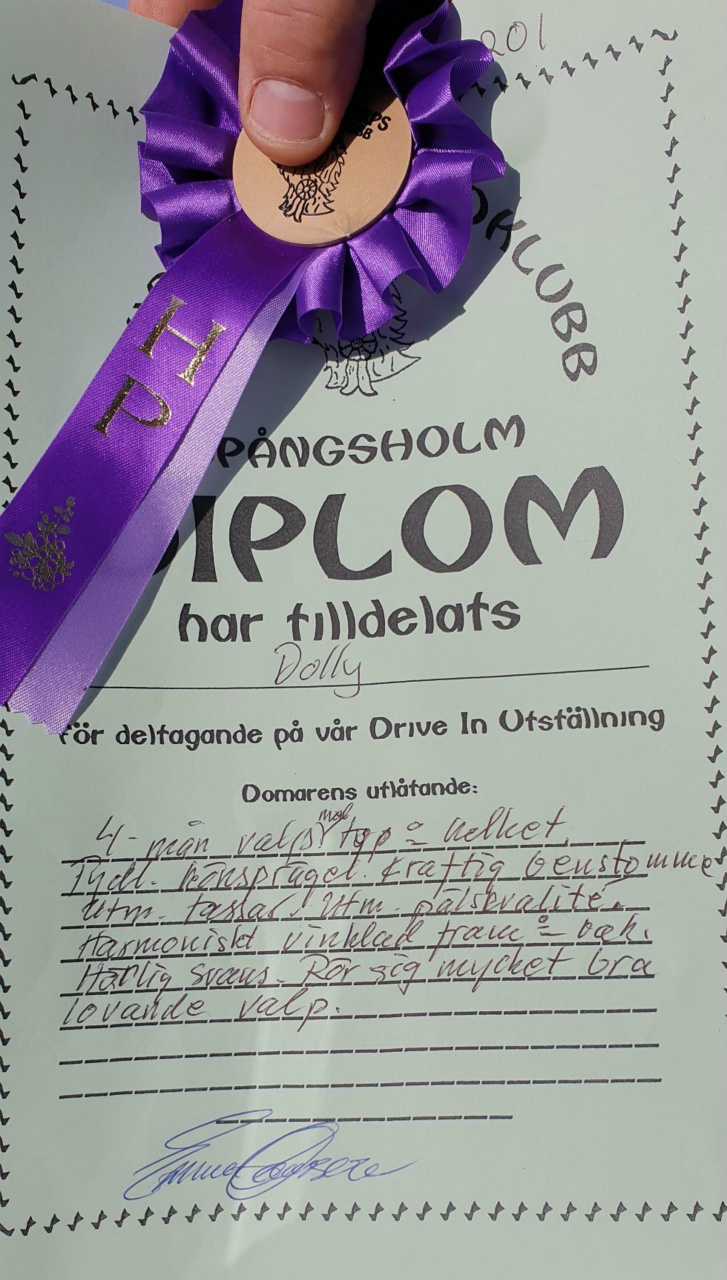 201
KLUBB
H
P
PÅNGSHOLM
DIPLOM
har tilldelats
Dolly
för deltagande på vår Drive In Utställning
Domarens utlåtande:
4-mån valp med typ o helhet
Tydl. könsprägel. Kraftig benstomme
Utm. tassar. Utm. pälskvalité.
Harmoniskt vinklad fram o bak.
Härlig svans. Rör sig mycket bra
lovande valp.